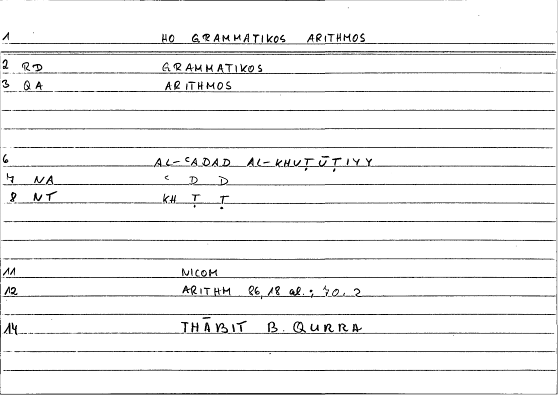 1 HO GRAMMATIKOS ARITHMOS
2 RD GRAMMATIKOS
3 QA ARITHMOS
6 AL-ʿADAD AL-KHUṬŪṬIYY
7 NA ʿ D D
8 NT KH Ṭ Ṭ
11 NICOM
12 ARITHM 86,18 al.;
14 THĀBIT B. QURRA